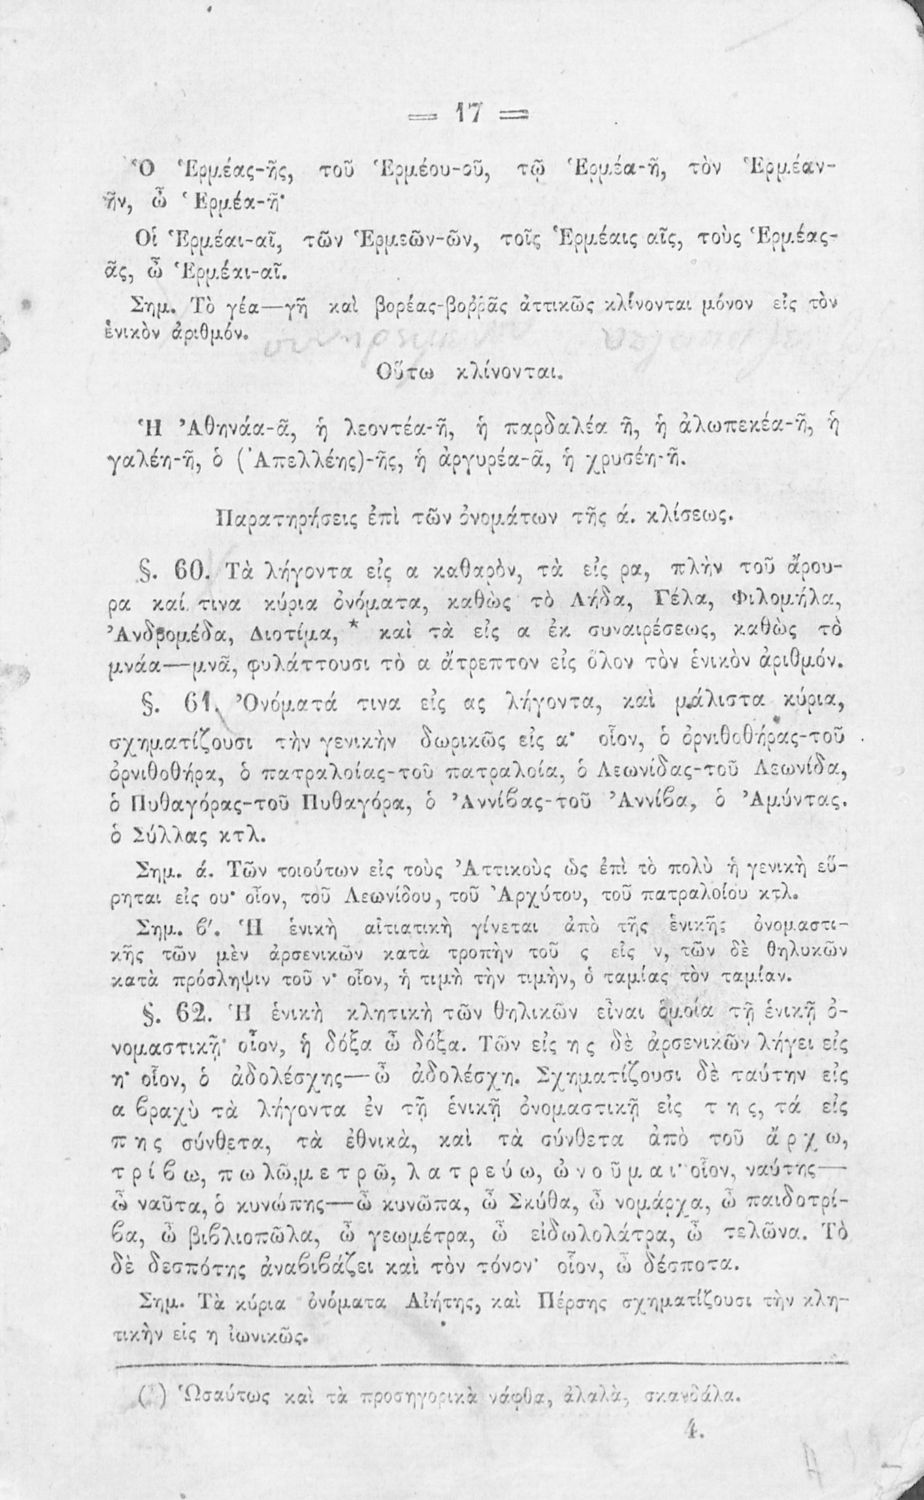 = 17 =
Ὁ Ἑρμέας-ῆς, τοῦ Ἑρμέου-οῦ, τῷ Ἑρμέᾳ-ῇ, τὸν Ἑρμέαν-
ῆν, ὦ Ἑρμέα-ῆ·
Οἱ Ἑρμέαι-αῖ, τῶν Ἑρμεῶν-ῶν, τοῖς Ἑρμέαις αῖς, τοὺς Ἑρμέας-
ᾶς, ὦ Ἑρμέαι-αῖ.
Σημ. Τὸ γέα—γῆ καὶ βορέας-βορῥᾶς ἀττικῶς κλίνονται μόνον εἰς τὸν
ἑνικὸν ἀριθμόν.
Οὕτω κλίνονται.
Ἡ Ἀθηνάα-ᾶ, ἡ λεοντέα-ῆ, ἡ παρδαλέα ῆ, ἡ ἀλωπεκέα-ῆ, ἡ
γαλέη-ῆ, ὁ (Ἀπελλέης)-ῆς, ἡ ἀργυρέα-ᾶ, ἡ χρυσέη-ῆ.
Παρατηρήσεις ἐπὶ τῶν ὀνομάτων τῆς ά. κλίσεως.
§. 60. Τὰ λήγοντα εἰς α καθαρὸν, τὰ εἰς ρα, πλὴν τοῦ ἄρου-
ρα καί τινα κύρια ὀνόματα, καθὼς τὸ Λήδα, Γέλα, Φιλομήλα,
Ἀνδρομέδα, Διοτίμα, * καὶ τὰ εἰς α ἐκ συναιρέσεως, καθὼς τὸ
μνάα—μνᾶ, φυλάττουσι τὸ α ἄτρεπτον εἰς ὅλον τὸν ἑνικὸν ἀριθμόν.
§. 61. Ὀνόματά τινα εἰς ας λήγοντα, καὶ μάλιστα κύρια,
σχηματίζουσι τὴν γενικὴν δωρικῶς εἰς α· οἷον, ὁ ὀρνιθοθήρας-τοῦ
ὀρνιθοθήρα, ὁ πατραλοίας-τοῦ πατραλοία, ὁ Λεωνίδας-τοῦ Λεωνίδα,
ὁ Πυθαγόρας-τοῦ Πυθαγόρα, ὁ Ἀννίβας-τοῦ Ἀννίβα, ὁ Ἀμύντας.
ὁ Σύλλας κτλ.
Σημ. ά. Τῶν τοιούτων εἰς τοὺς Ἀττικοὺς ὡς ἐπὶ τὸ πολὺ ἡ γενικὴ εὕ-
ρηται εἰς ου· οἷον, τοῦ Λεωνίδου, τοῦ Ἀρχύτου, τοῦ πατραλοίου κτλ.
Σημ. ϐ'. Ἡ ἑνικὴ αἰτιατικὴ γίνεται ἀπὸ τῆς ἑνικῆς ὀνομαστι-
κῆς τῶν μὲν ἀρσενικῶν κατὰ τροπὴν τοῦ ς εἰς ν, τῶν δὲ θηλυκῶν
κατὰ πρόσληψιν τοῦ ν· οἷον, ἡ τιμὴ τὴν τιμὴν, ὁ ταμίας τὸν ταμίαν.
§. 62. Ἡ ἑνικὴ κλητικὴ τῶν θηλικῶν εἶναι ὁμοία τῇ ἑνικῇ ὀ-
νομαστικῇ· οἷον, ἡ δόξα ὦ δόξα. Τῶν εἰς ης δὲ ἀρσενικῶν λήγει εἰς
η· οἷον, ὁ ἀδολέσχης—ὦ ἀδολέσχη. Σχηματίζουσι δὲ ταύτην εἰς
α βραχὺ τὰ λήγοντα ἐν τῇ ἑνικῇ ὀνομαστικῇ εἰς της, τά εἰς
πης σύνθετα, τὰ ἐθνικὰ, καὶ τὰ σύνθετα ἀπὸ τοῦ ἄρχω,
τρίϐω, πωλῶ, μετρῶ, λατρεύω, ὠνοῦμαι· οἷον, ναύτης—
ὦ ναῦτα, ὁ κυνώπης—ὦ κυνῶπα, ὦ Σκύθα, ὦ νομάρχα, ὦ παιδοτρί-
ϐα, ὦ βιϐλιοπῶλα, ὦ γεωμέτρα, ὦ εἰδωλολάτρα, ὦ τελῶνα. Τὸ
δὲ δεσπότης ἀναϐιϐάζει καὶ τὸν τόνον· οἷον, ὦ δέσποτα.
Σημ. Τὰ κύρια ὀνόματα Αἰήτης, καὶ Πέρσης σχηματίζουσι τὴν κλη-
τικὴν εἰς η ἰωνικῶς.
(*) Ὡσαύτως καὶ τὰ προσηγορικὰ νάφθα, ἀλαλὰ, σκανδάλα.
4.